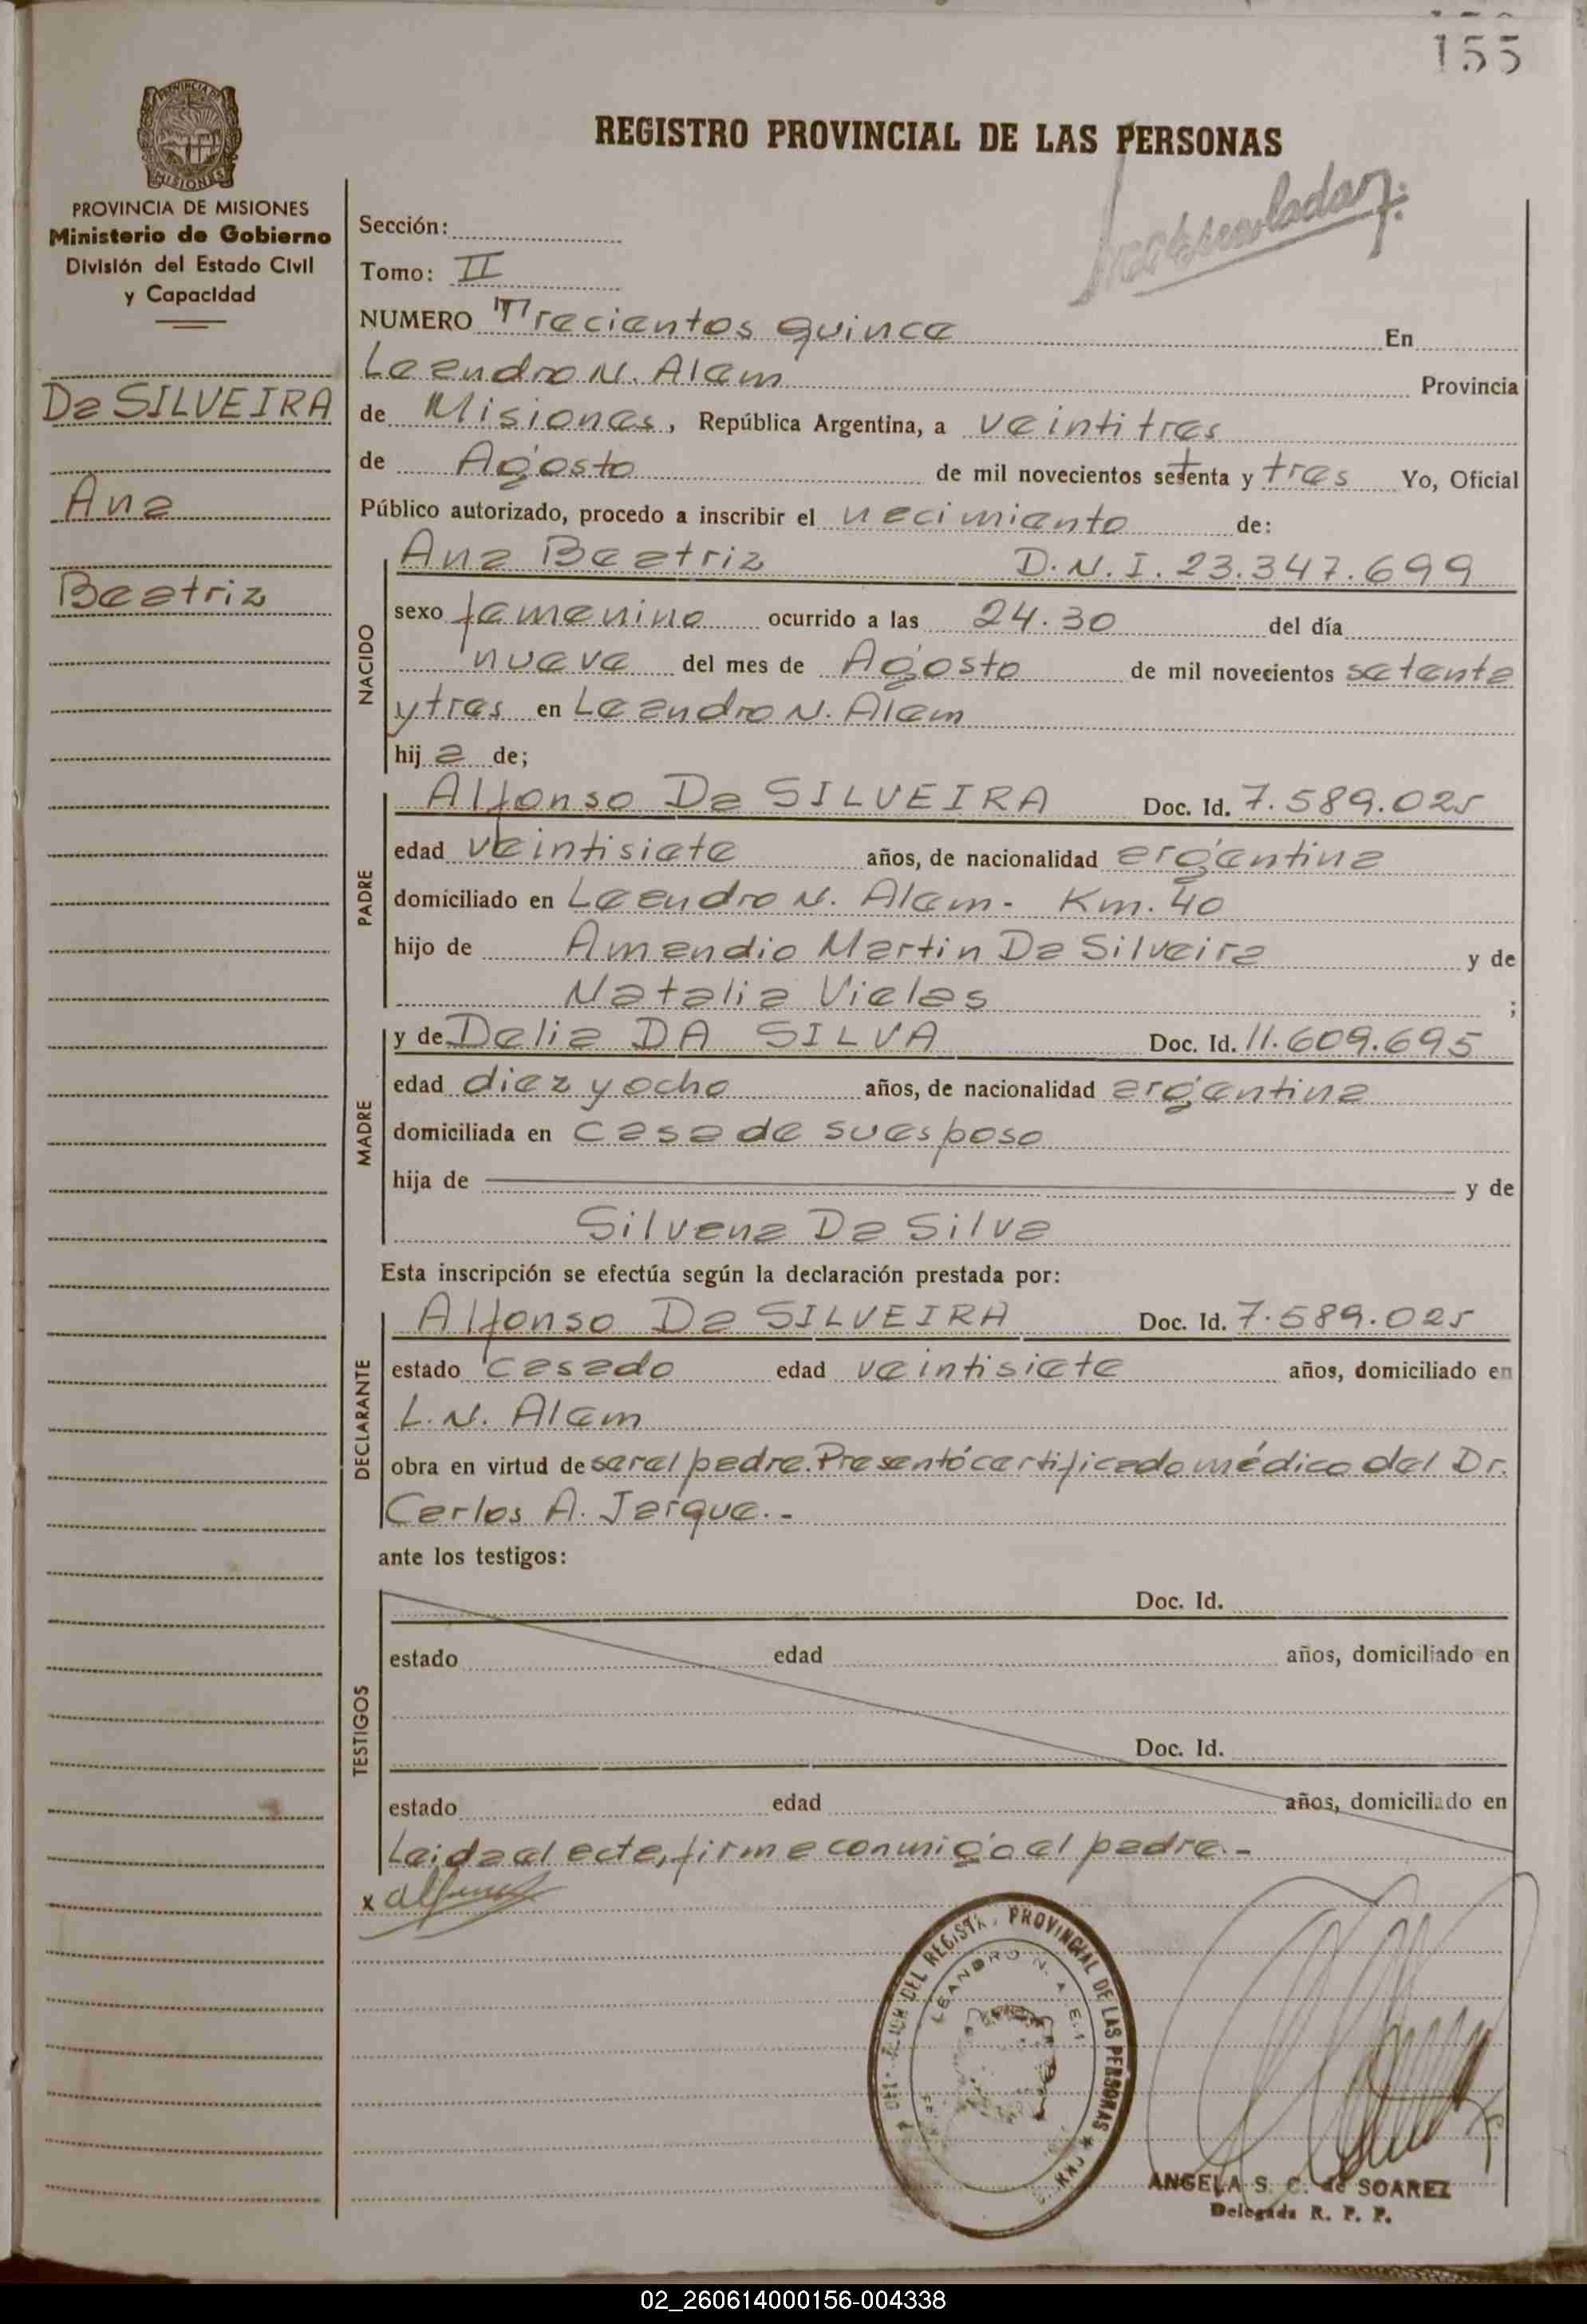 155
REGISTRO PROVINCIAL DE LAS PERSONAS
PROVINCIA DE MISIONES
Ministerio de Gobierno
División del Estado Civil
y Capacidad
Da SILVEIRA
Ana
Beatriz
Sección:
Tomo: II
NUMERO Trecientos quince En
Leandro N. Alem Provincia
de Misiones, República Argentina, a veintitres
de Agosto de mil novecientos setenta y tres Yo, Oficial
Público autorizado, procedo a inscribir el nacimiento de:
NACIDO
Ana Beatriz D.N.I. 23.347.699
sexo femenino ocurrido a las 24.30 del día
nueve del mes de Agosto de mil novecientos setenta
y tres en Leandro N. Alem
hij a de;
PADRE
Alfonso Da SILVEIRA Doc. Id. 7.589.025
edad veintisiete años, de nacionalidad argentina
domiciliado en Leandro N. Alem - Km. 40
hijo de Amandio Martin Da Silveira y de
Natalia Vielas ;
MADRE
y de Delia DA SILVA Doc. Id. 11.609.695
edad diez y ocho años, de nacionalidad argentina
domiciliada en casa de su esposo
hija de y de
Silvana Da Silva
Esta inscripción se efectúa según la declaración prestada por:
DECLARANTE
Alfonso Da SILVEIRA Doc. Id. 7.589.025
estado casado edad veintisiete años, domiciliado en
L.N. Alem
obra en virtud de ser el padre. Presentó certificado médico del Dr.
Carlos A. Jarque.-
ante los testigos:
TESTIGOS
Doc. Id.
estado edad años, domiciliado en
Doc. Id.
estado edad años, domiciliado en
Leida el acta, firma conmigo el padre.-
x
DEL REGISTR. PROVINCIAL DE LAS PERSONAS
LEANDRO N. ALEM
ANGELA S. C. de SOAREZ
Delegada R. P. P.
02_260614000156-004338